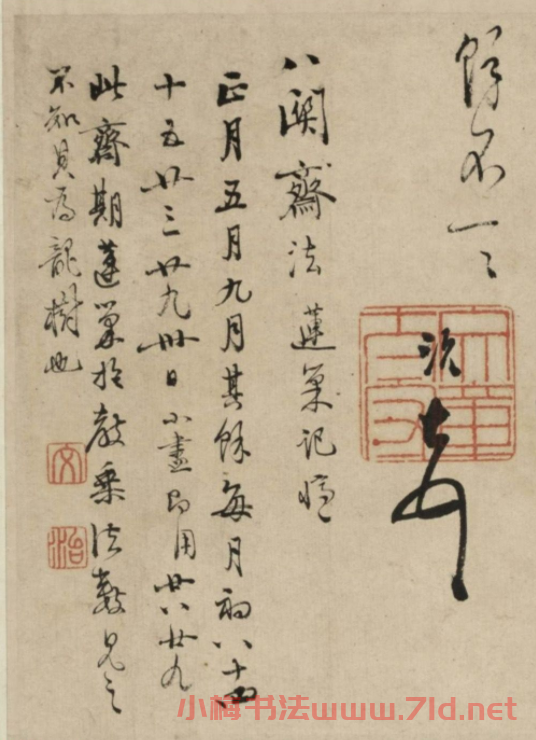 餘不一〻
治
八關齋法 蓮巢記
正月五月九月其餘每月初八十四
十五廿三廿九卅日小盡即用廿八廿九
此齋期蓮巢於教乘法數見之
不知其為龍樹也
文
治
小梅书法www.7ld.net